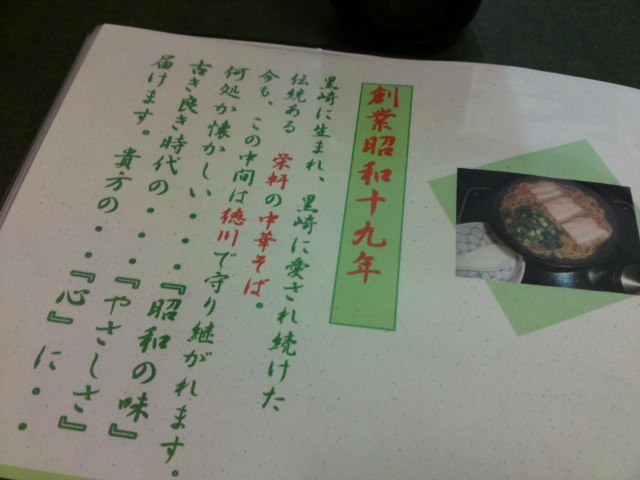 創業昭和十九年
黒崎に生まれ、黒崎に愛され続けた
伝統ある　栄軒の中華そば。
今も、この中間は徳川で守り継がれます。
何処か懐かしい・・・『昭和の味』
古き良き時代の・・・『やさしさ』
届けます。貴方の・・『心』に・・